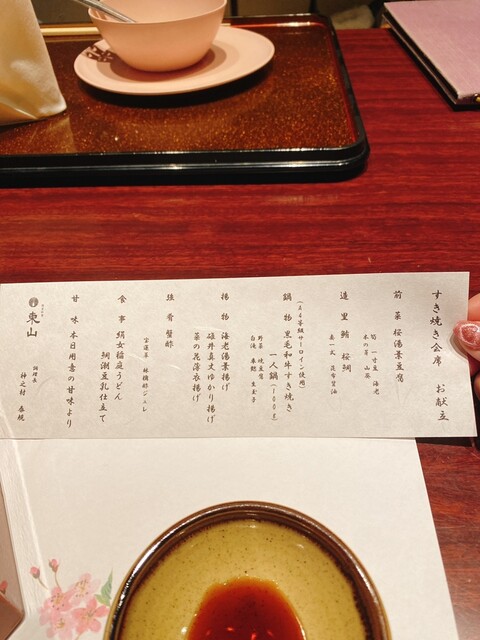 すき焼き会席　お献立
前菜 桜湯葉豆腐
筍 一寸豆 海老
木の芽 山葵
造里 鮪 桜鯛
あしらい一式 昆布醤油
(A4等級サーロイン使用)
鍋物 黒毛和牛すき焼き
一人鍋(100g)
野菜 焼豆腐
白滝 車麩 生玉子
揚物 海老湯葉揚げ
碓井真丈ゆかり揚げ
菜の花薄衣揚げ
強肴 蟹酢
林檎酢ジュレ
食事 絹女稲庭うどん
鯛潮豆乳仕立て
甘味 本日用意の甘味より
東山
調理長